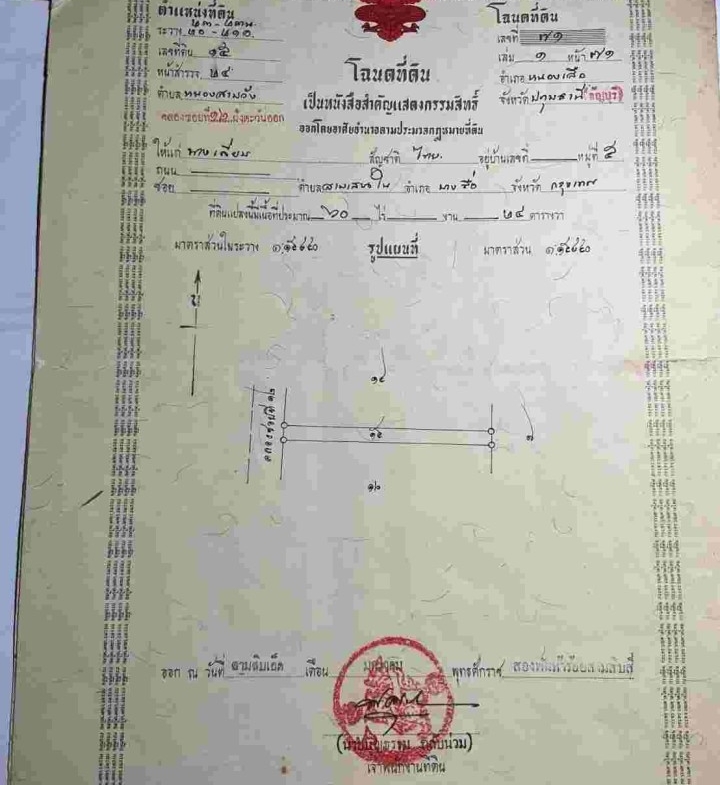 ตำแหน่งที่ดิน
ระวาง
เลขที่ดิน ๑๕
หน้าสำรวจ ๒๔
ตำบล หนองสามวัง
คลองซอยที่ ๑๒ ฝั่งตะวันออก
โฉนดที่ดิน
เลขที่ ๗๑
เล่ม ๑ หน้า ๗๑
อำเภอ หนองเสือ
จังหวัด ปทุมธานี (ธัญบุรี)
โฉนดที่ดิน
เป็นหนังสือสำคัญแสดงกรรมสิทธิ์
ออกโดยอาศัยอำนาจตามประมวลกฎหมายที่ดิน
ให้แก่ สัญชาติ ไทย อยู่บ้านเลขที่ หมู่ที่ ๕
ถนน
ซอย ตำบล สามเสนใน อำเภอ บางซื่อ จังหวัด กรุงเทพ
ที่ดินแปลงนี้มีเนื้อที่ประมาณ ๖๐ ไร่ งาน ๒๔ ตารางวา
มาตราส่วนในระวาง รูปแผนที่ มาตราส่วน
น
๑๔
คลองซอยที่ ๑๒
๑๕
๑๖
ออก ณ วันที่ สามสิบเอ็ด เดือน พุทธศักราช
เจ้าพนักงานที่ดิน